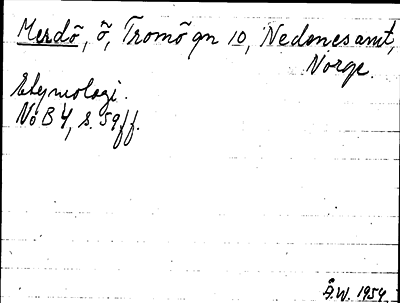 Merdö, ö, Tromö gn 10, Nedenesamt,
Norge.
Etymologi.
NoB 4, s. 59 ff.
Å.W. 1954